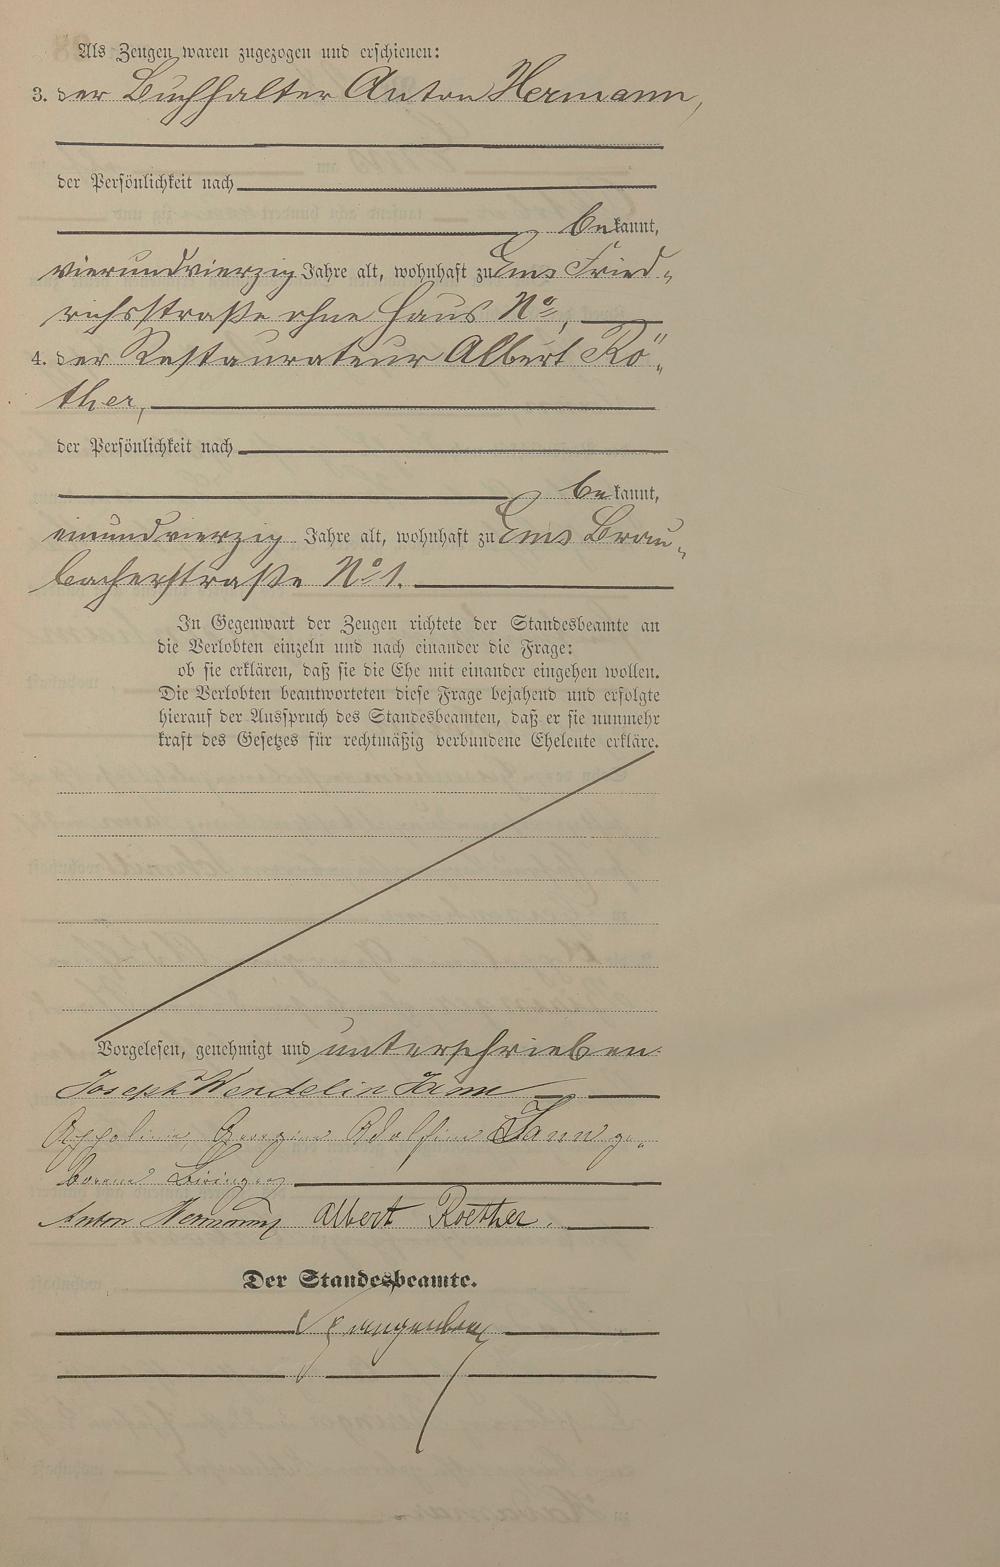 Als Zeugen waren zugezogen und erschienen:
3. der Buchhalter Anton Hermann,
der Persönlichkeit nach
bekannt,
vierundvierzig Jahre alt, wohnhaft zu Ems Fried-
richsstraße ohne Haus No,
4. der Restaurateur Albert Rö-
ther,
der Persönlichkeit nach
bekannt,
einundvierzig Jahre alt, wohnhaft zu Ems Brau-
bacherstraße No 1.
In Gegenwart der Zeugen richtete der Standesbeamte an
die Verlobten einzeln und nach einander die Frage:
ob sie erklären, daß sie die Ehe mit einander eingehen wollen.
Die Verlobten beantworteten diese Frage bejahend und erfolgte
hierauf der Ausspruch des Standesbeamten, daß er sie nunmehr
kraft des Gesetzes für rechtmäßig verbundene Eheleute erkläre.
Vorgelesen, genehmigt und unterschrieben
Joseph Wendelin
ge-
borene
Anton Hermann Albert Roether.
Der Standesbeamte.